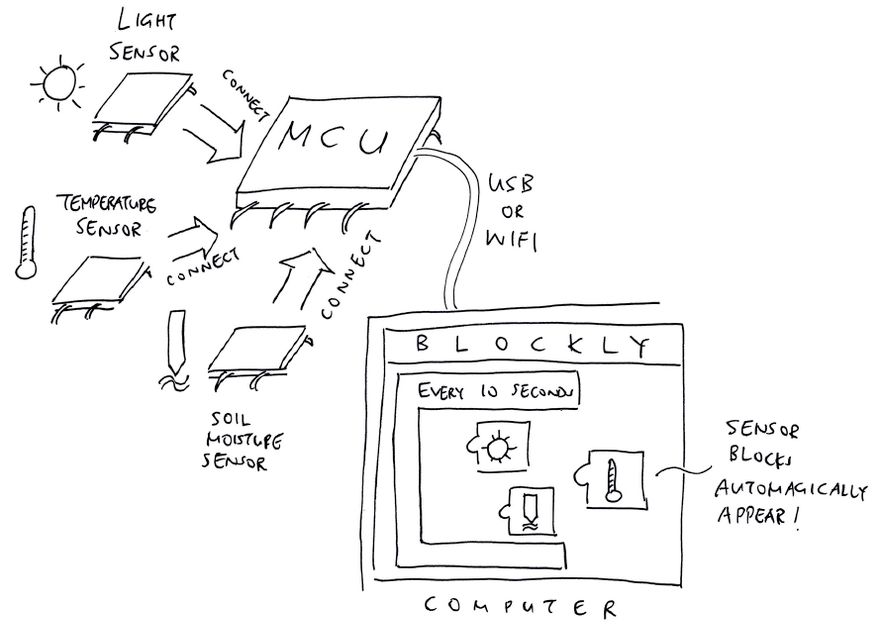 LIGHT
SENSOR
CONNECT
MCU
USB
OR
WIFI
TEMPERATURE
SENSOR
CONNECT
CONNECT
SOIL
MOISTURE
SENSOR
BLOCKLY
EVERY 10 SECONDS
SENSOR
BLOCKS
AUTOMAGICALLY
APPEAR!
COMPUTER